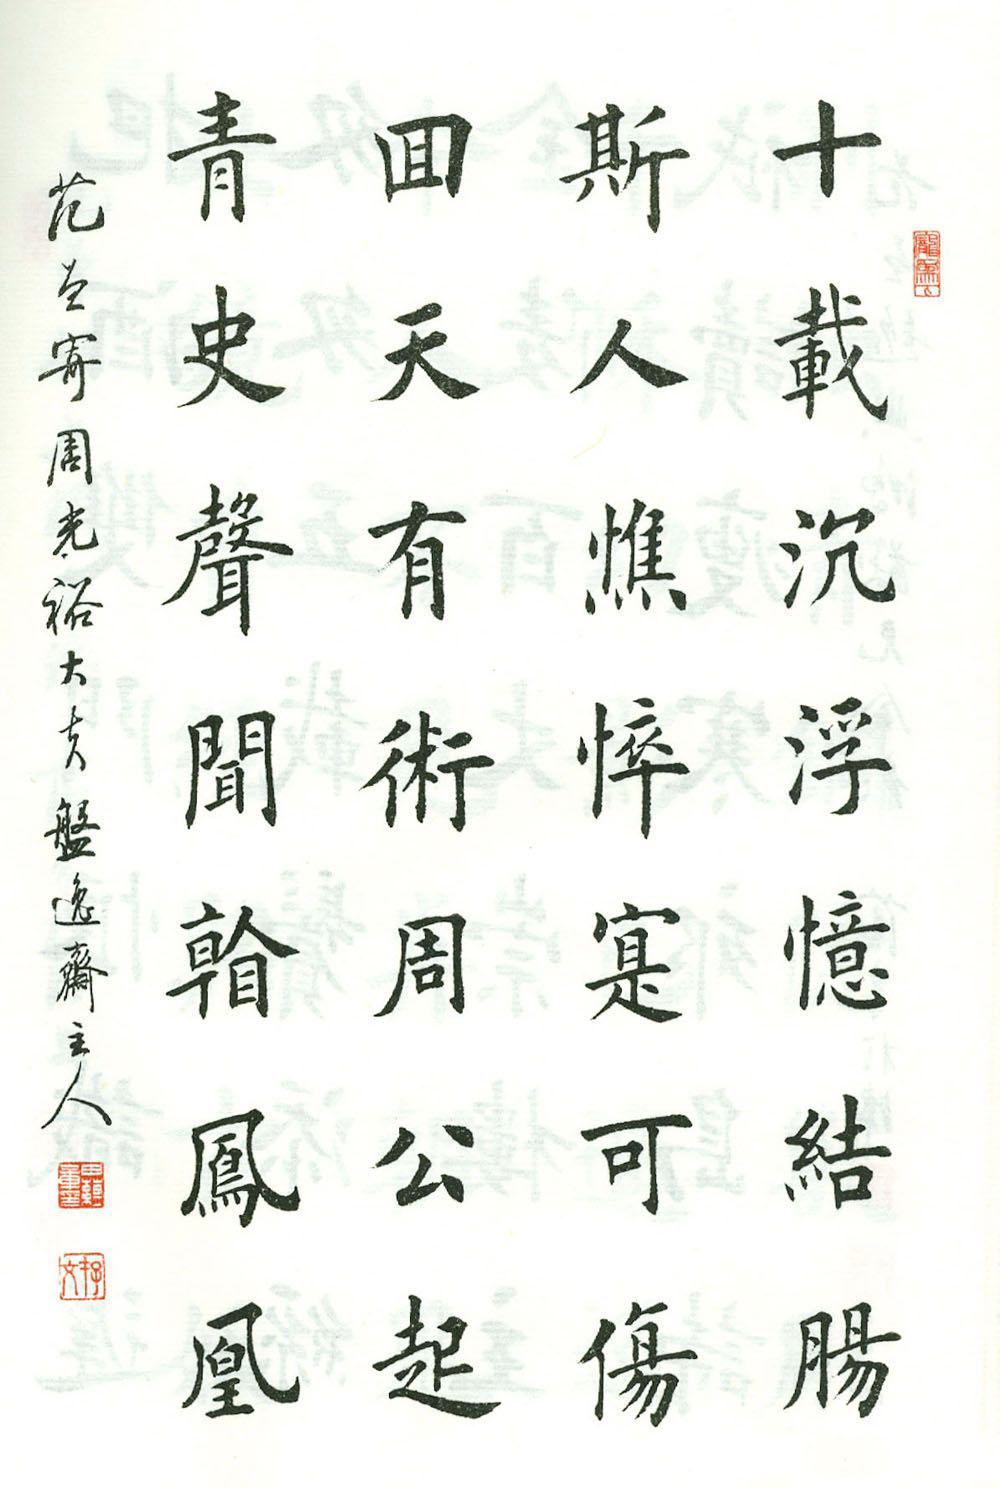 十載沉浮憶結腸
斯人憔悴寔可傷
囬天有術周公起
青史聲聞翰鳳凰
范寄周光裕大夫盤逸齋主人